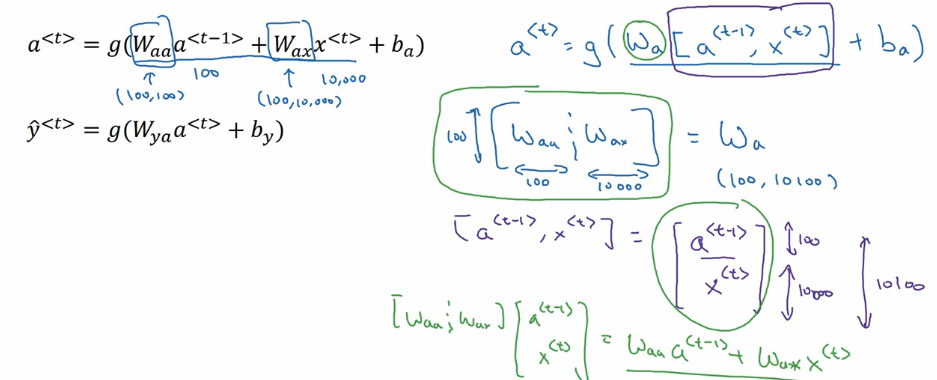 a<t> = g(Waa a<t-1> + Wax x<t> + ba)
↑ 100 ↑ 10,000
(100,100) (100,10,000)
ŷ<t> = g(Wya a<t> + by)
a<t> = g(Wa [a<t-1>, x<t>] + ba)
100 [Waa ; Wax] = Wa
100 10000 (100, 10100)
[a<t-1>, x<t>] = [a<t-1>
x<t>] 100 10000 10100
[Waa ; Wax] [a<t-1>
x<t>] = Waa a<t-1> + Wax x<t>